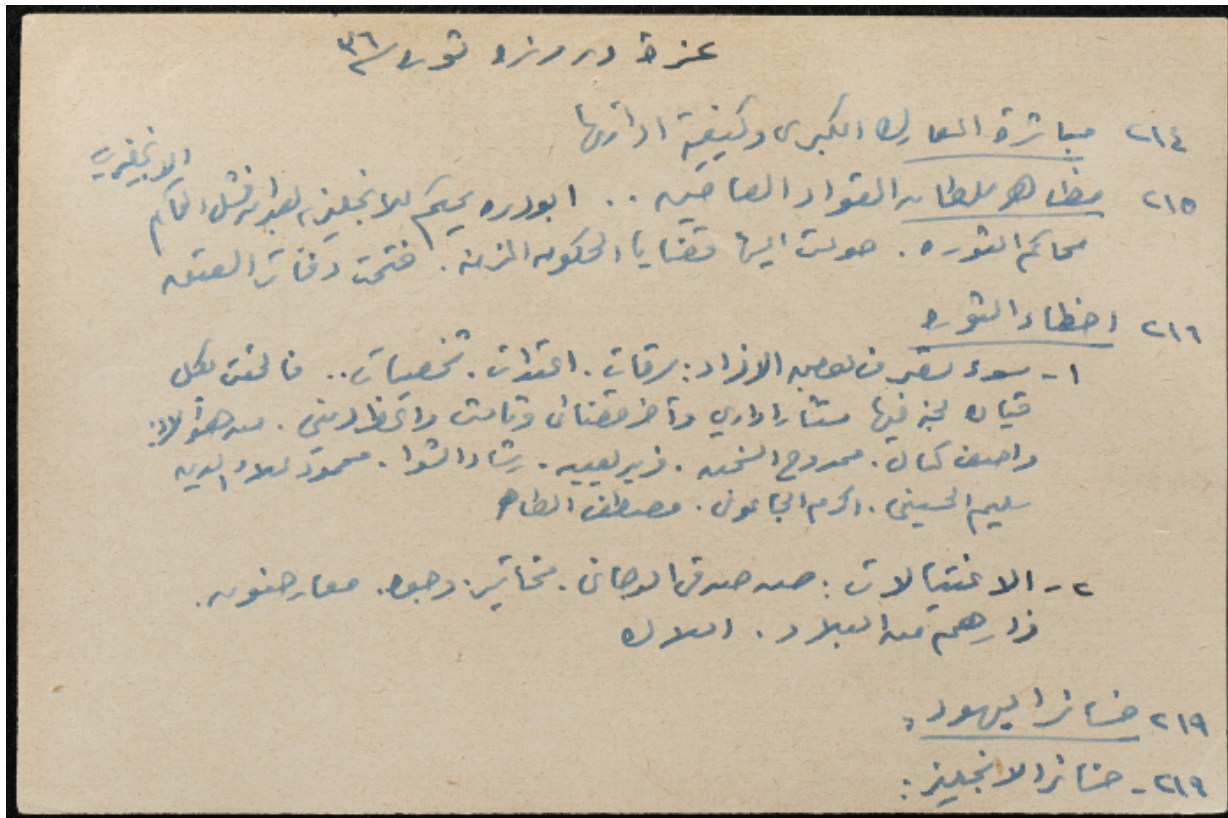 عزة دروزه ثوره ٣٦
٢١٤ مباشرة المعارك الكبرى وكيفية ادارتها
الانجليزي
٢١٥ مظاهر سلطان القواد العاصين .. ابو دره يحكم للانجليزيه بعد ان فشل الحاكم
محاكم الثوره . حولت اليها قضايا الحكومه المزمنه . فتحت دفاتر العتق
٢١٦ اخطاء الثوره
١- سوء تصرف بعض الافراد : سرقات . اعتداءات . شخصيات .. فالحقت بكل
قياده لجنه فيها مستشار اداري وآخر قضائي وثالث . من هؤلاء :
واصف كمال . ممدوح السخن . فريد يعيش . رشاد الشوا . محمود علاء الدين
سليم الحسيني . اكرم الجاعوني . مصطفى الطاهر
٢- الاغتيالات : حسن صدقي الدجاني . مخاتير . وجوه . معارضون .
فرارهم من البلاد . املاك
٢١٩ خسائر اليهود :
٢١٩ - خسائر الانجليز :